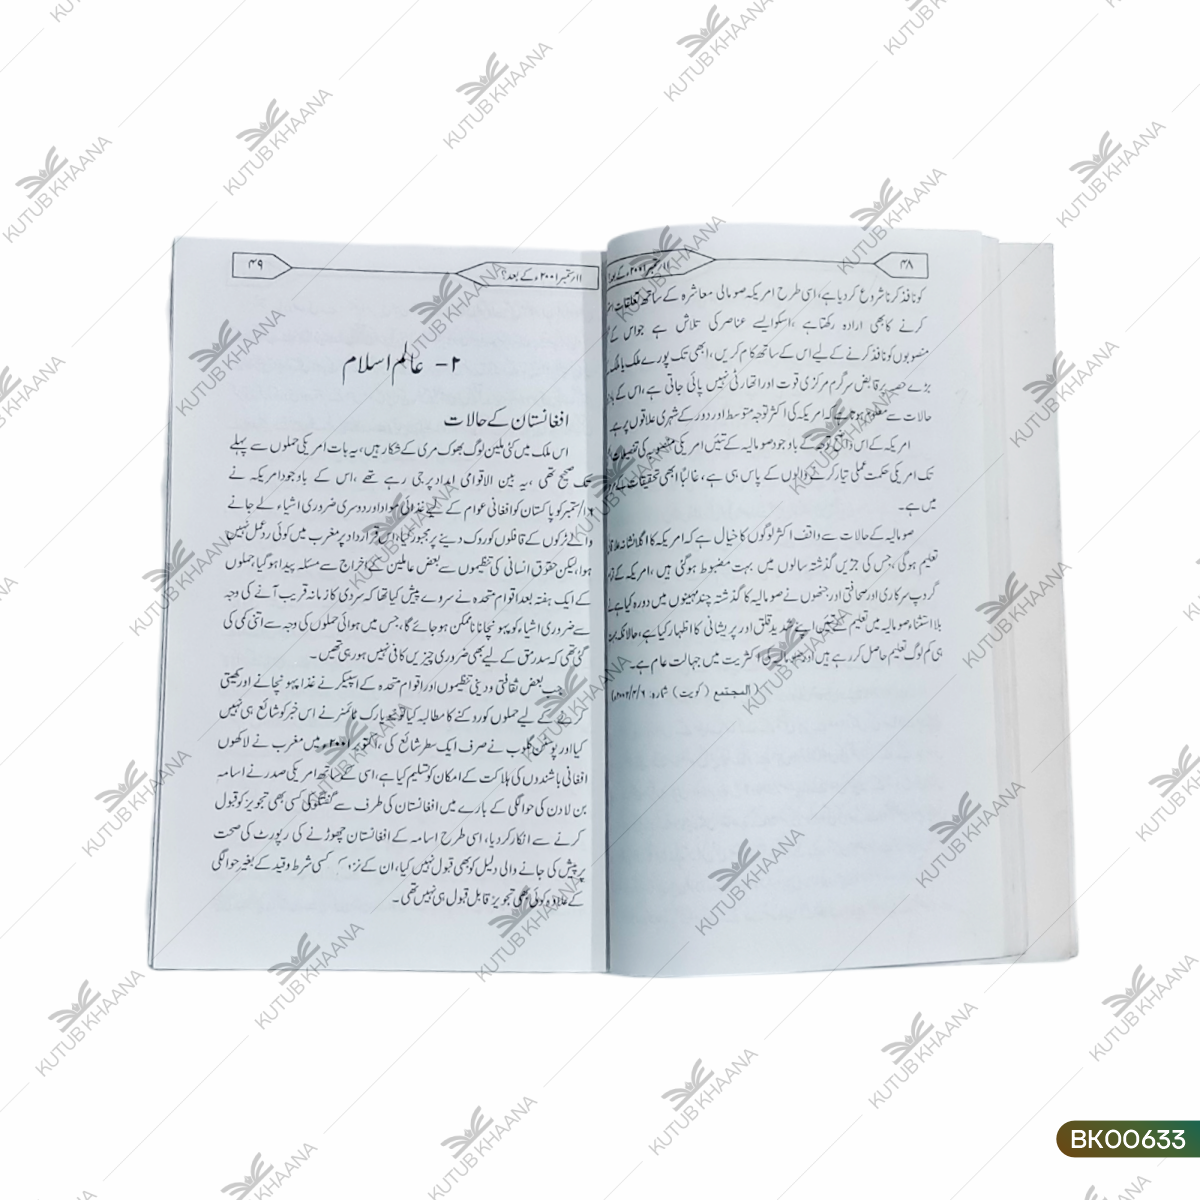 ۴۸
۱۱ستمبر ۲۰۰۱ء کے بعد
کو نافذ کرنا شروع کردیا ہے، اسی طرح امریکہ صومالی معاشرہ کے ساتھ تعلقات
کرنے کا بھی ارادہ رکھتا ہے، اسکو ایسے عناصر کی تلاش ہے جو اس کے
منصوبوں کو نافذ کرنے کے لیے اس کے ساتھ کام کریں، ابھی تک پورے ملک یا ملک
بڑے حصہ پر قابض سرگرم مرکزی قوت اور اتھارٹی نہیں پائی جاتی ہے، اس کے
حالات سے معلوم ہوتا ہے کہ امریکہ کی اکثر توجہ متوسط اور دور کے شہری علاقوں پر ہے
امریکہ کے اس واضح توجہ کے باوجود صومالیہ کے تئیں امریکی منصوبہ کی تفصیلات
تک امریکی حکمت عملی تیار کرنے والوں کے پاس ہی ہے، غالبًا ابھی تحقیقات کے
میں ہے۔
صومالیہ کے حالات سے واقف اکثر لوگوں کا خیال ہے کہ امریکہ کا اگلا نشانہ
تعلیم ہوگی، جس کی جڑیں گذشتہ سالوں میں بہت مضبوط ہوگئی ہیں، امریکہ کے
گروپ سرکاری اور صحافتی اور جنھوں نے صومالیہ کا گذشتہ چند مہینوں میں دورہ کیا ہے
بلا استثناء صومالیہ میں تعلیم کے تئیں اپنے شدید قلق اور پریشانی کا اظہار کیا ہے، حالانکہ بہت
ہی کم لوگ تعلیم حاصل کررہے ہیں اور صومالیہ کی اکثریت میں جہالت عام ہے۔
(المجتمع (کویت) شمارہ: ۲۰۰۲/۳/۶ء)
۴۹
۱۱ستمبر ۲۰۰۱ء کے بعد؟
۲- عالم اسلام
افغانستان کے حالات
اس ملک میں کئی ملین لوگ بھوک مری کے شکار ہیں، یہ بات امریکی حملوں سے پہلے
تک صحیح تھی، یہ بین الاقوامی امداد پر جی رہے تھے، اس کے باوجود امریکہ نے
۱۶/ستمبر کو پاکستان کو افغانی عوام کے لیے غذائی مواد اور دوسری ضروری اشیاء لے جانے
والے ٹرکوں کے قافلوں کو روک دینے پر مجبور کیا، اس قرارداد پر مغرب میں کوئی ردعمل نہیں
ہوا، لیکن حقوق انسانی کی تنظیموں سے بعض عاملین کے اخراج سے مسئلہ پیدا ہوگیا، حملوں
کے ایک ہفتہ بعد اقوام متحدہ نے سروے پیش کیا تھا کہ سردی کا زمانہ قریب آنے کی وجہ
سے ضروری اشیاء کو پہونچانا ناممکن ہوجائے گا، جس میں ہوائی حملوں کی وجہ سے اتنی کمی کی
گئی تھی کہ سدرمق کے لیے بھی ضروری چیزیں کافی نہیں ہورہی تھیں۔
جب بعض ثقافتی و دینی تنظیموں اور اقوام متحدہ کے اسپیکر نے غذا پہونچانے اور کھیتی
کرنے کے لیے حملوں کو روکنے کا مطالبہ کیا تو نیویارک ٹائمز نے اس خبر کو شائع ہی نہیں
کیا اور بوسٹن گلوب نے صرف ایک سطر شائع کی، اکتوبر ۲۰۰۱ء میں مغرب نے لاکھوں
افغانی باشندوں کی ہلاکت کے امکان کو تسلیم کیا ہے، اسی کے ساتھ امریکی صدر نے اسامہ
بن لادن کی حوالگی کے بارے میں افغانستان کی طرف سے گفتگو کی کسی بھی تجویز کو قبول
کرنے سے انکار کردیا، اسی طرح اسامہ کے افغانستان چھوڑنے کی رپورٹ کی صحت
پر پیش کی جانے والی دلیل کو بھی قبول نہیں کیا، ان کے کسی شرط و قید کے بغیر حوالگی
کے علاوہ کوئی بھی تجویز قابل قبول ہی نہیں تھی۔
KUTUB KHAANA
BK00633